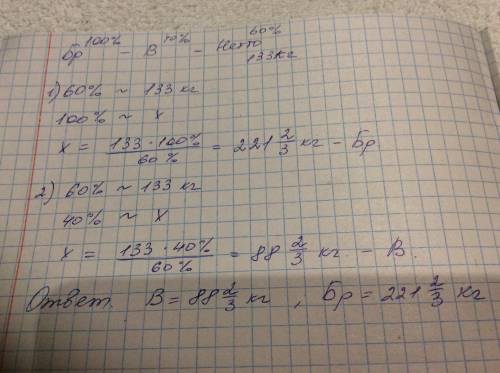 Бр 100% – В 40% – Нетто 60% 133кг
1) 60% ~ 133 кг
100% ~ х
х = 133 · 100% / 60% = 221 2/3 кг – Бр
2) 60% ~ 133 кг
40% ~ х
х = 133 · 40% / 60% = 88 2/3 кг. – В.
Ответ. В = 88 2/3 кг , Бр = 221 2/3 кг